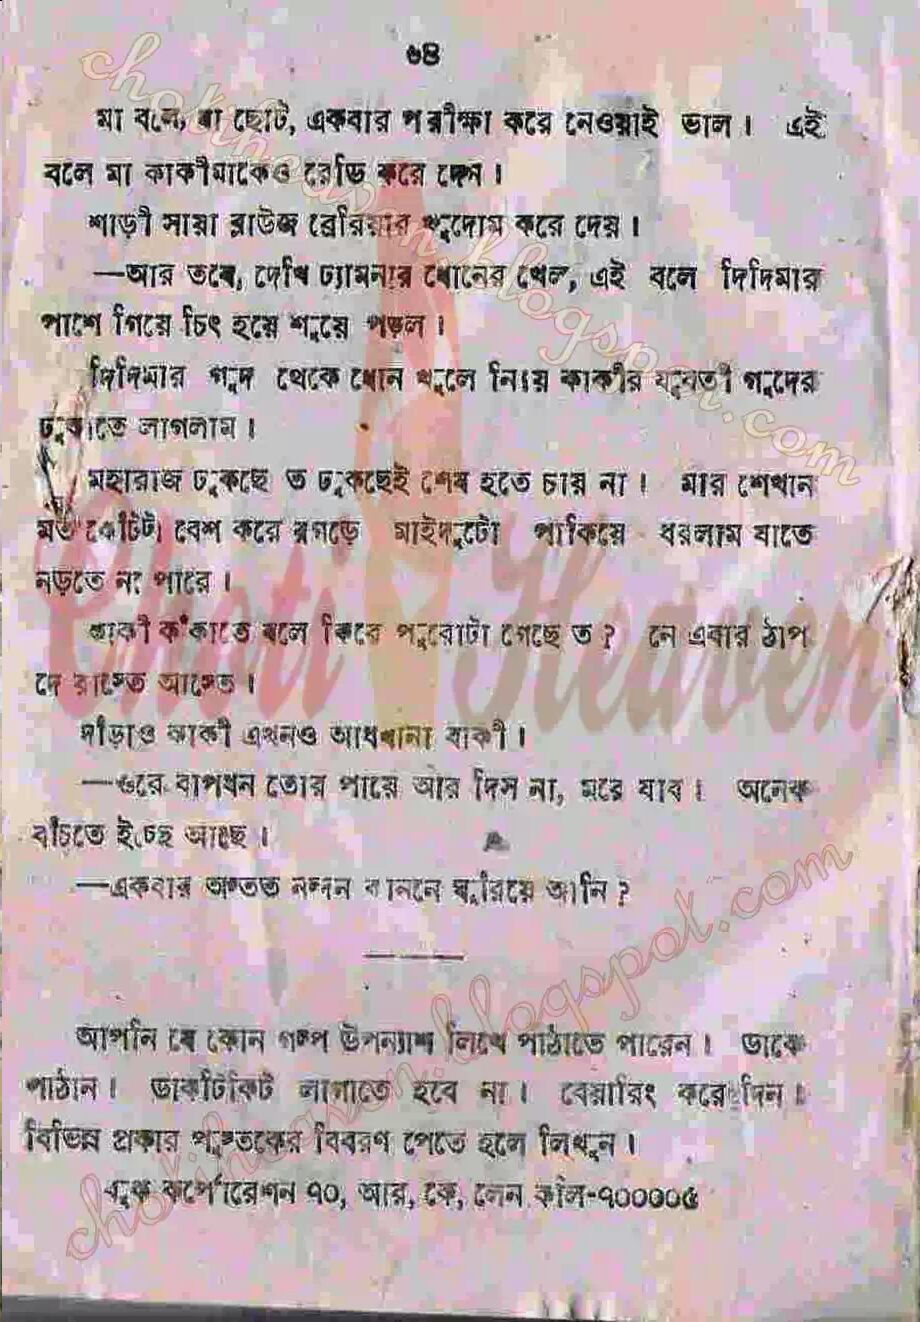 ৬৪
মা বলে, বা ছোট, একবার পরীক্ষা করে নেওয়াই ভাল। এই
বলে মা কাকীমাকেও রেডি করে দেন।
শাড়ী সায়া ব্লাউজ ব্রেসিয়ার খুদোম করে দেয়।
—আর তবে, দেখি ঢ্যামনার ধোনের খেল, এই বলে দিদিমার
পাশে গিয়ে চিৎ হয়ে শুয়ে পড়ল।
দিদিমার গুদ থেকে ধোন খুলে নিয়ে কাকীর যুবতী গুদের
ঢুকাতে লাগলাম।
মহারাজ ঢুকছে ত ঢুকছেই শেষ হতে চায় না। মার শেখান
মত কোঁটটা বেশ করে রগড়ে মাইদুটো পাকিয়ে ধরলাম যাতে
নড়তে না পারে।
কাকী কঁকাতে বলে কিরে পুরোটা গেছে ত? নে এবার ঠাপ
দে আস্তে আস্তে।
দাঁড়াও কাকী এখনও আধখানা বাকী।
—ওরে বাপধন তোর পায়ে আর দিস না, মরে যাব। অনেক
বাঁচতে ইচ্ছে আছে।
—একবার অন্তত নন্দন কাননে ঘুরিয়ে আনি?
আপনি যে কোন গল্প উপন্যাশ লিখে পাঠাতে পারেন। ডাকে
পাঠান। ডাকটিকিট লাগাতে হবে না। বেয়ারিং করে দিন।
বিভিন্ন প্রকার পুস্তকের বিবরণ পেতে হলে লিখুন।
বুক কর্পোরেশন ৭০, আর, কে, লেন কলি-৭০০০০৫
Choti Heaven
chotiheaven.blogspot.com
chotiheaven.blogspot.com